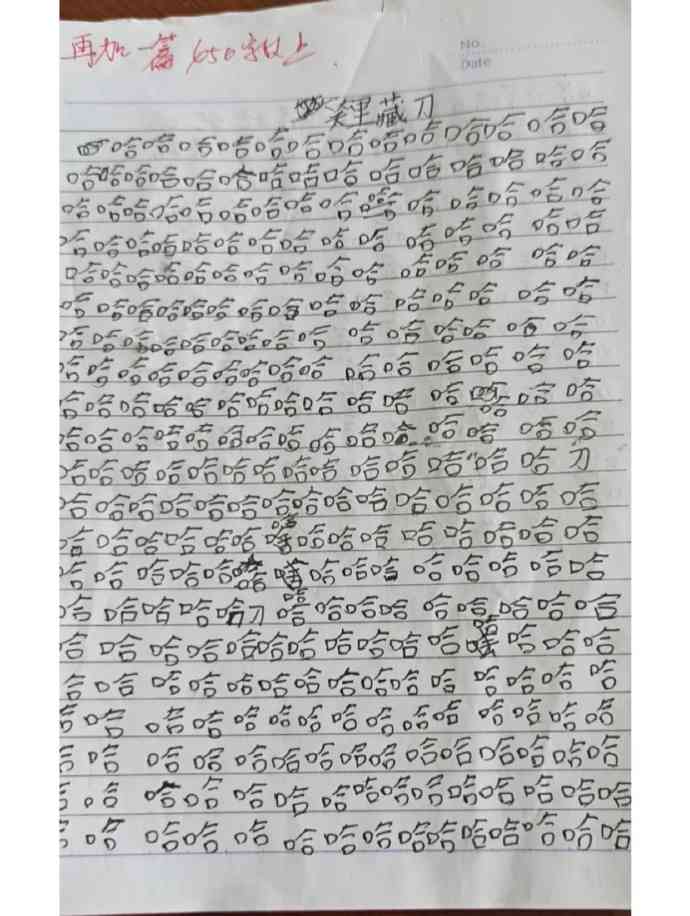 再加一篇650字以上
No
Date
笑里藏刀
哈哈哈哈哈哈哈哈哈哈哈哈哈
哈哈哈哈哈哈哈哈哈哈哈哈哈哈哈
哈哈哈哈哈哈哈哈哈哈哈哈哈哈哈
哈哈哈哈哈哈哈哈哈哈哈哈哈哈哈
哈哈哈哈哈哈哈哈哈哈哈哈哈哈哈
哈哈哈哈哈哈哈哈哈哈哈哈哈哈哈
哈哈哈哈哈哈哈哈哈哈哈哈哈哈哈
哈哈哈哈哈哈哈哈哈哈哈哈哈哈哈
哈哈哈哈哈哈哈哈哈哈哈哈哈哈哈
哈哈哈哈哈哈哈哈哈哈哈哈哈哈哈
哈哈哈哈哈哈哈哈哈哈哈哈哈哈刀
哈哈哈哈哈哈哈哈哈哈哈哈哈哈哈
哈哈哈哈哈哈哈哈哈哈哈哈哈哈哈
哈哈哈哈哈哈哈哈哈哈哈哈哈哈哈
哈哈哈哈哈刀哈哈哈哈哈哈哈哈哈
哈哈哈哈哈哈哈哈哈哈哈哈哈哈哈
哈哈哈哈哈哈哈哈哈哈哈哈哈哈哈
哈哈哈哈哈哈哈哈哈哈哈哈哈哈哈
哈哈哈哈哈哈哈哈哈哈哈哈哈哈哈
哈哈哈哈哈哈哈哈哈哈哈哈哈哈哈
哈哈哈哈哈哈哈哈哈哈哈哈哈哈哈